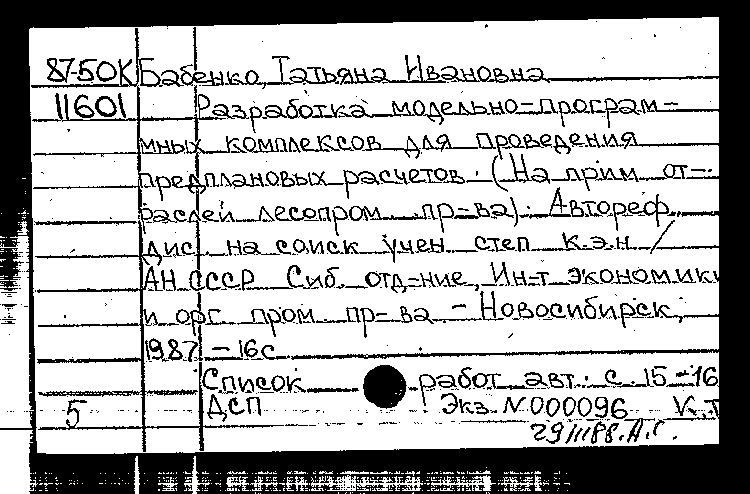 87-50К Бабенко, Татьяна Ивановна
11601 Разработка модельно-програм-
мных комплексов для проведения
предплановых расчетов. (На прим от-
раслей лесопром. пр-ва). Автореф.
дис. на соиск учен степ к.э.н /
АН СССР Сиб. отд-ние, Ин-т экономики
и орг. пром. пр-ва. - Новосибирск,
1987. - 16с
Список работ авт. с. 15-16
5 ДСП Экз. N 000096 К.Т
29/II88. А.Г.